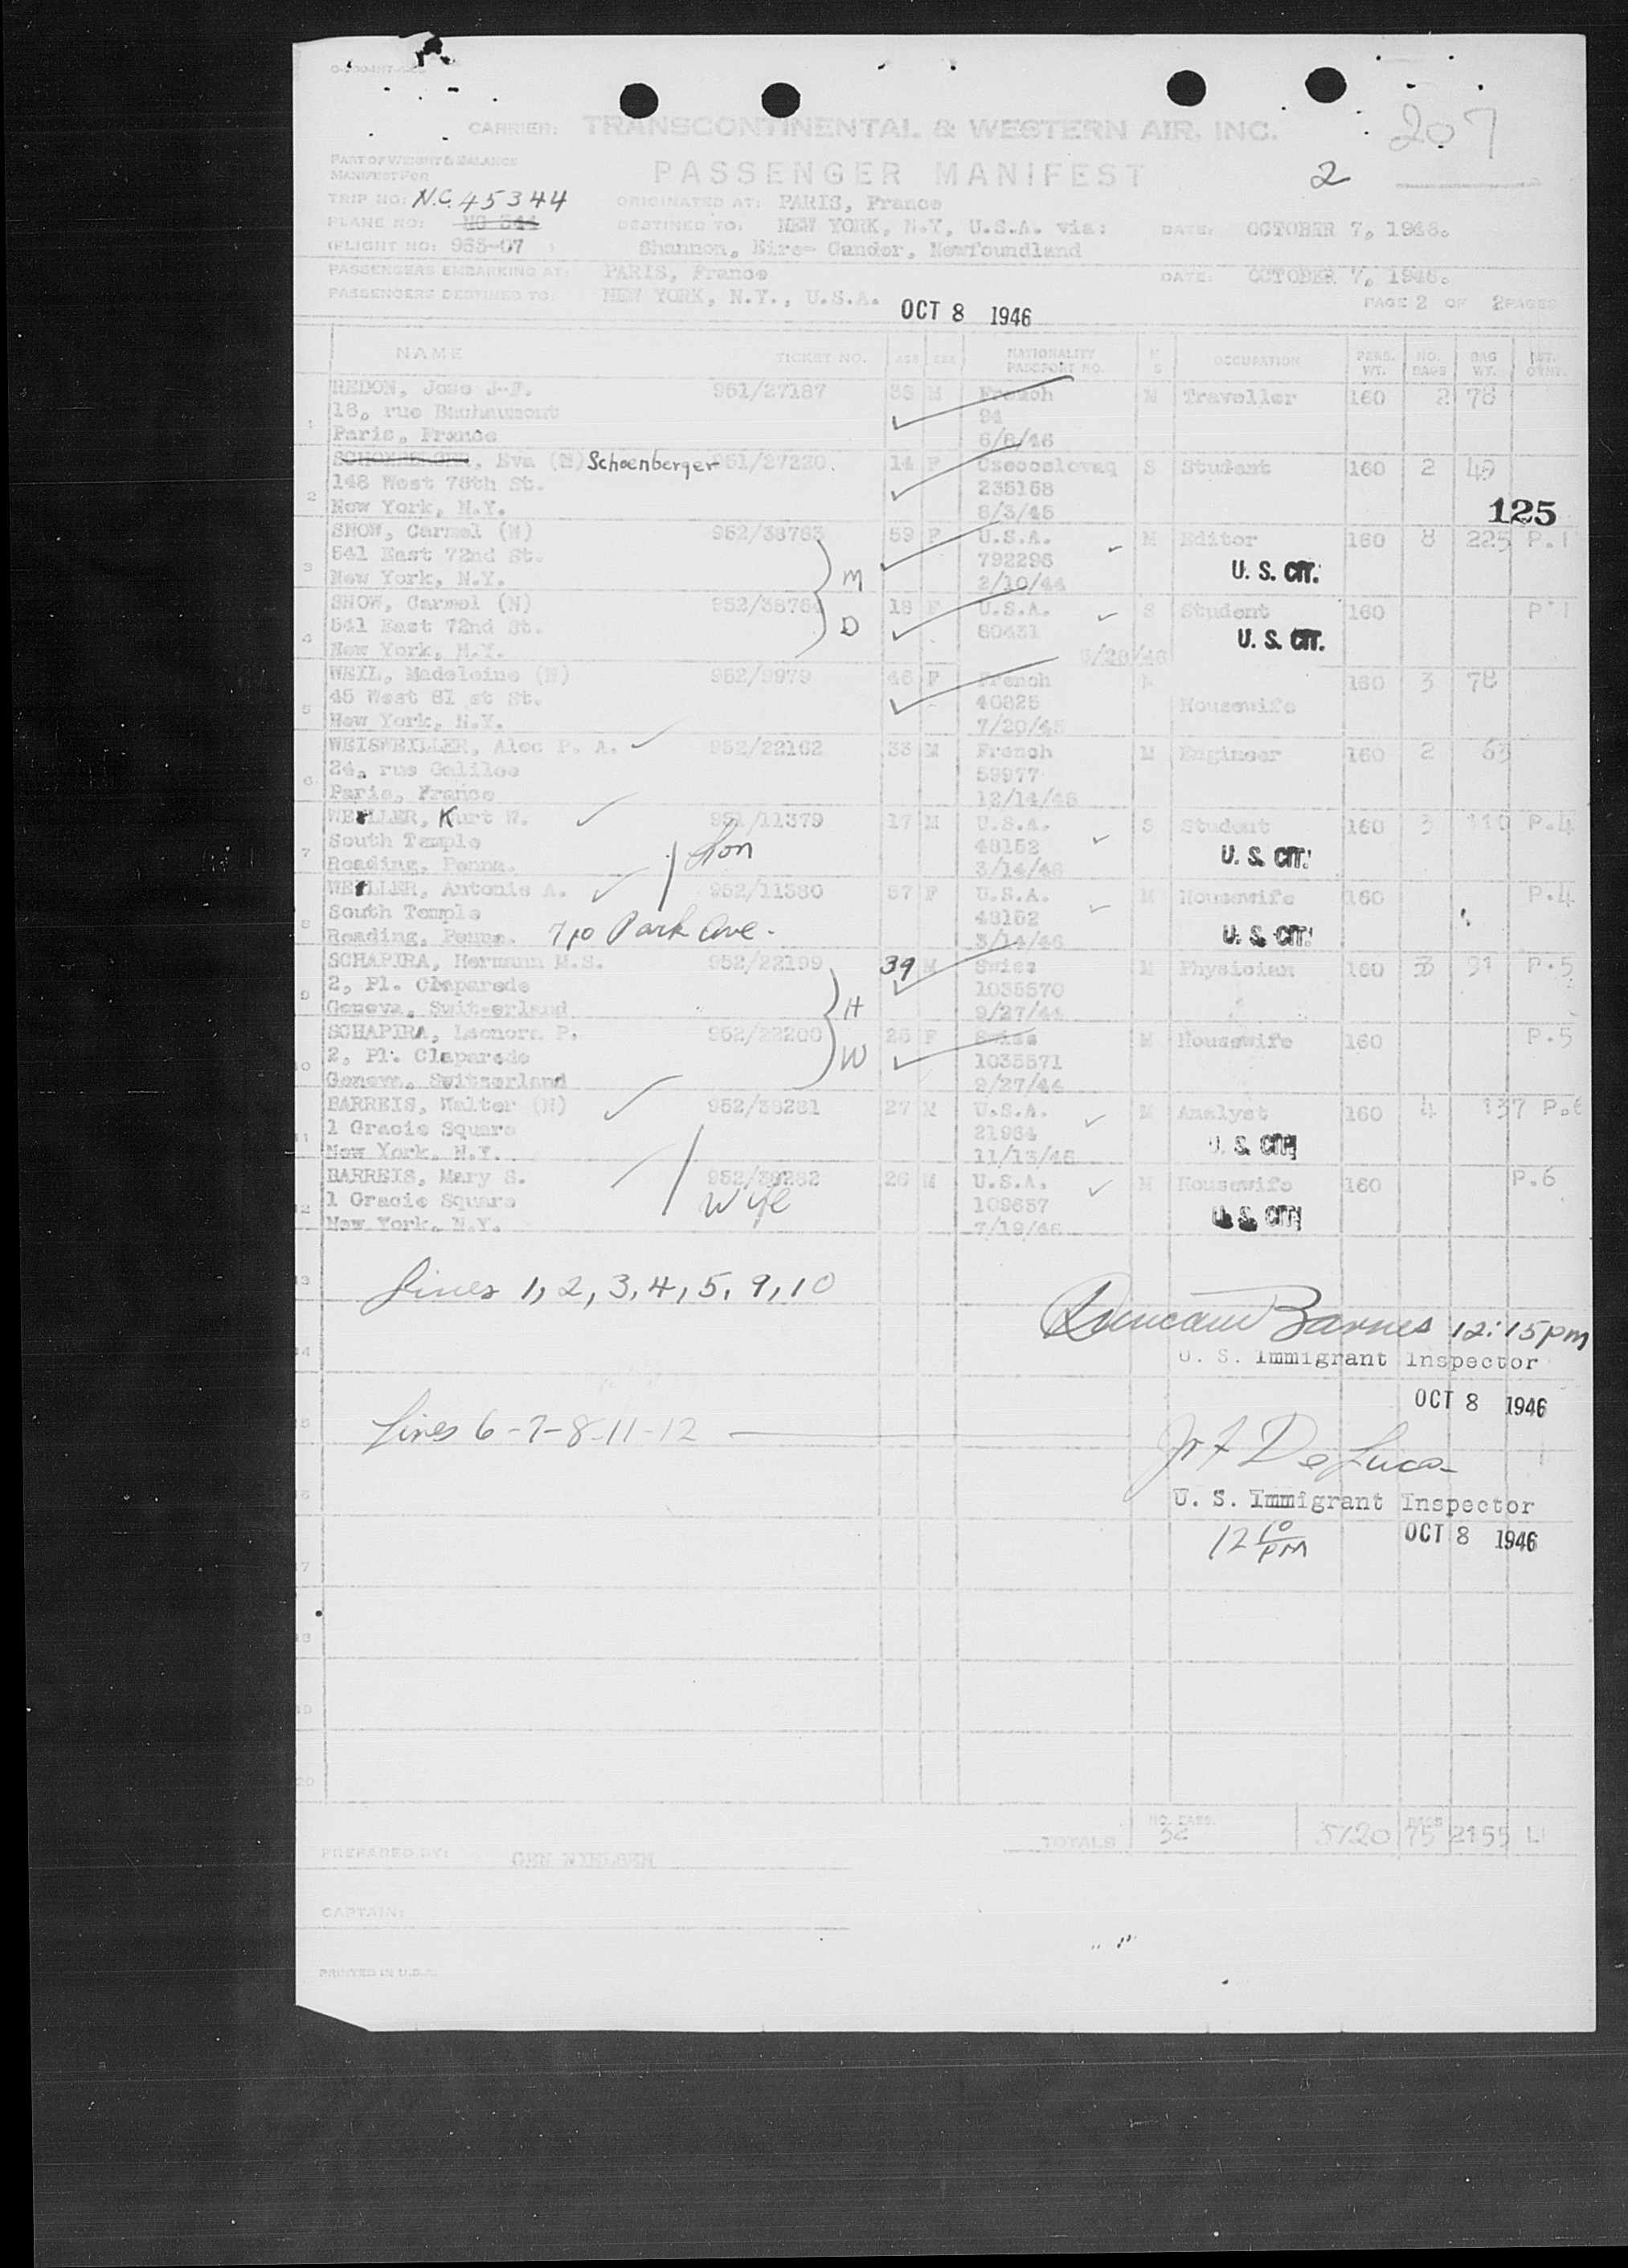 207
CARRIER: TRANSCONTINENTAL & WESTERN AIR, INC.
PART OF WEIGHT & BALANCE
MANIFEST FOR
PASSENGER MANIFEST 2
TRIP NO: N.C. 45344 ORIGINATED AT: PARIS, France
PLANE NO: NC 344 DESTINED TO: NEW YORK, N.Y, U.S.A. via: DATE: OCTOBER 7, 1946.
(FLIGHT NO: 965-07 ) Shannon, Eire- Gander, Newfoundland
PASSENGERS EMBARKING AT: PARIS, France DATE: OCTOBER 7, 1946.
PASSENGERS DESTINED TO: NEW YORK, N.Y., U.S.A. OCT 8 1946 PAGE 2 OF 2 PAGES
NAME TICKET NO. AGE SEX NATIONALITY PASSPORT NO. M S OCCUPATION PERS. WT. NO. BAGS BAG WT.
1 REDON, Jose J-F. 951/27187 38 M French M Traveller 160 2 78
18, rue 94
Paris, France 6/6/46
2 Eva (N) Schoenberger 951/27220 14 F S Student 160 2 49
148 West 78th St. 235158
New York, N.Y. 8/3/45
125
3 SNOW, Carmel (N) 952/38763 59 F U.S.A. M Editor 160 8 225 P.1
541 East 72nd St. 792296 U. S. CIT.
New York, N.Y. M 2/10/44
4 SNOW, Carmel (N) 952/38764 18 F U.S.A. S Student 160 P.1
541 East 72nd St. D 60431 U. S. CIT.
New York, N.Y. 6/28/46
5 WEIL, Madeleine (N) 952/9979 46 F French M 160 3 78
45 West 81 st St. 40825 Housewife
New York, N.Y. 7/20/45
6 WEISWEILLER, Alec P. A. 952/22162 33 M French M Engineer 160 2 63
24, rue Galilee 59977
Paris, France 12/14/45
7 Kurt W. 951/11379 17 M U.S.A. S Student 160 3 110 P.4
South Temple Son 48152 U. S. CIT.
Reading, Penna. 3/14/46
8 Antonie A. 952/11380 57 F U.S.A. M Housewife 160 P.4
South Temple 48152
Reading, Penna. 710 Park Ave. 3/14/46 U. S. CIT.
9 SCHAPIRA, Hermann M.S. 952/22199 39 M Swiss M Physician 160 3 31 P.5
2, Pl. Claparede 1035570
Geneva, Switzerland H 9/27/44
10 SCHAPIRA, Leonora P. 952/22200 26 F Swiss M Housewife 160 P.5
2, Pl. Claparede W 1035571
Geneva, Switzerland 9/27/44
11 BARREIS, Walter (N) 952/38281 27 M U.S.A. M Analyst 160 4 137 P.6
1 Gracie Square 21984 U. S. CIT.
New York, N.Y. 11/13/45
12 BARREIS, Mary S. 952/38282 26 M U.S.A. M Housewife 160 P.6
1 Gracie Square Wife 109657 U. S. CIT.
New York, N.Y. 7/19/46
13 Lines 1, 2, 3, 4, 5, 9, 10
Duncan Barnes 12:15 pm
14 U. S. Immigrant Inspector
OCT 8 1946
15 Lines 6-7-8-11-12
De Luca
16 U. S. Immigrant Inspector
12 10 PM OCT 8 1946
17
18
19
20
TOTALS NO. PASS. 32 5120 BAGS 75 2155
PREPARED BY: GEN NIELSEN
CAPTAIN:
PRINTED IN U.S.A.